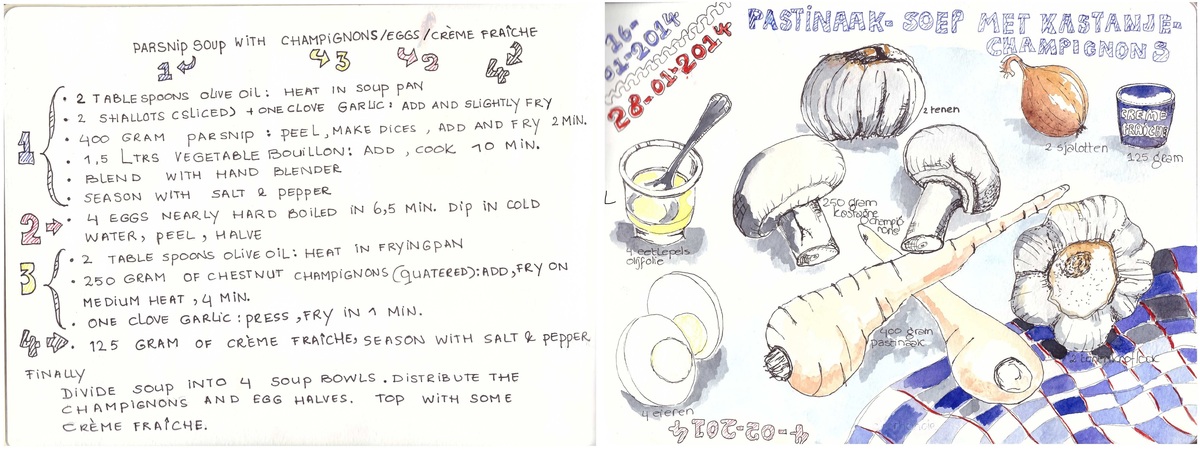 PARSNIP SOUP WITH CHAMPIGNONS/EGGS/CRÈME FRAÎCHE
1 3 2 4
1
• 2 TABLESPOONS OLIVE OIL: HEAT IN SOUP PAN
• 2 SHALLOTS (SLICED) + ONE CLOVE GARLIC: ADD AND SLIGHTLY FRY
• 400 GRAM PARSNIP: PEEL, MAKE DICES, ADD AND FRY 2 MIN.
• 1,5 LTRS VEGETABLE BOUILLON: ADD, COOK 10 MIN.
• BLEND WITH HAND BLENDER
• SEASON WITH SALT & PEPPER
2
• 4 EGGS NEARLY HARD BOILED IN 6,5 MIN. DIP IN COLD
WATER, PEEL, HALVE
3
• 2 TABLE SPOONS OLIVE OIL: HEAT IN FRYINGPAN
• 250 GRAM OF CHESTNUT CHAMPIGNONS (QUATERED): ADD, FRY ON
MEDIUM HEAT, 4 MIN.
• ONE CLOVE GARLIC: PRESS, FRY IN 1 MIN.
4
• 125 GRAM OF CRÈME FRAÎCHE, SEASON WITH SALT & PEPPER
FINALLY
DIVIDE SOUP INTO 4 SOUP BOWLS. DISTRIBUTE THE
CHAMPIGNONS AND EGG HALVES. TOP WITH SOME
CRÈME FRAICHE.
16-
01-2014
28-01-2014
PASTINAAK- SOEP MET KASTANJE-
CHAMPIGNONS
2 tenen
2 sjalotten
CREME
FRAÎCHE
125 gram
250 gram
kastagne
champig
nons
4 eetlepels
olijfolie
400 gram
pastinaak
4 eieren
4-02-2014